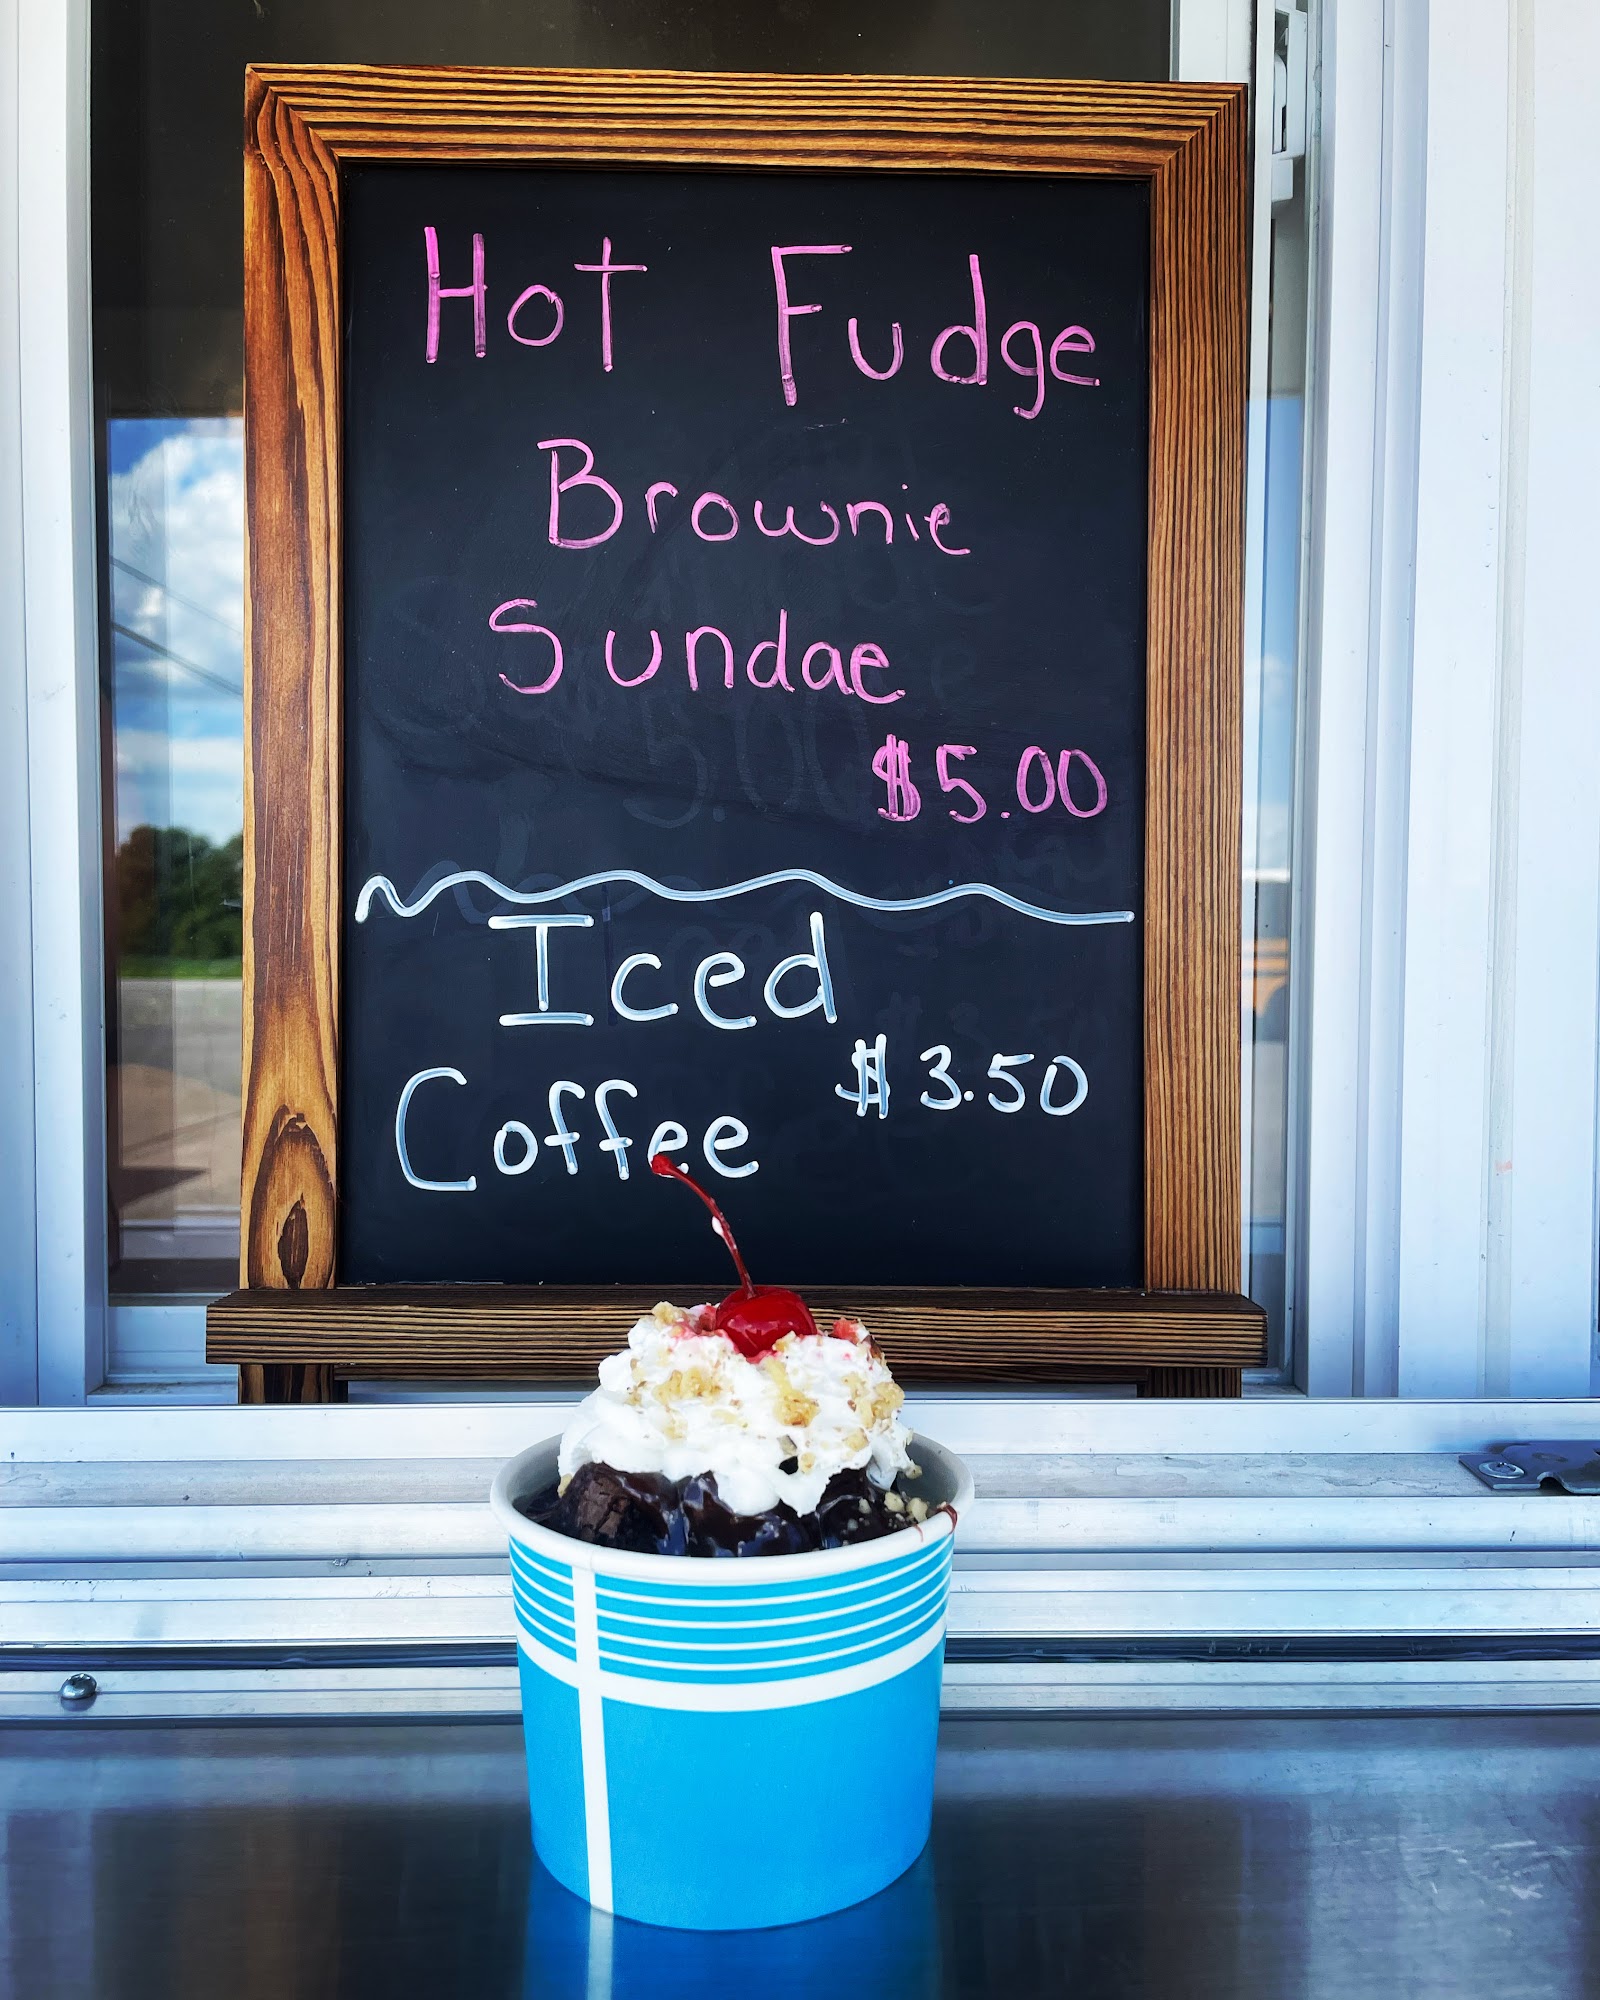 Hot Fudge
Brownie
Sundae
$5.00
Iced
$3.50
Coffee